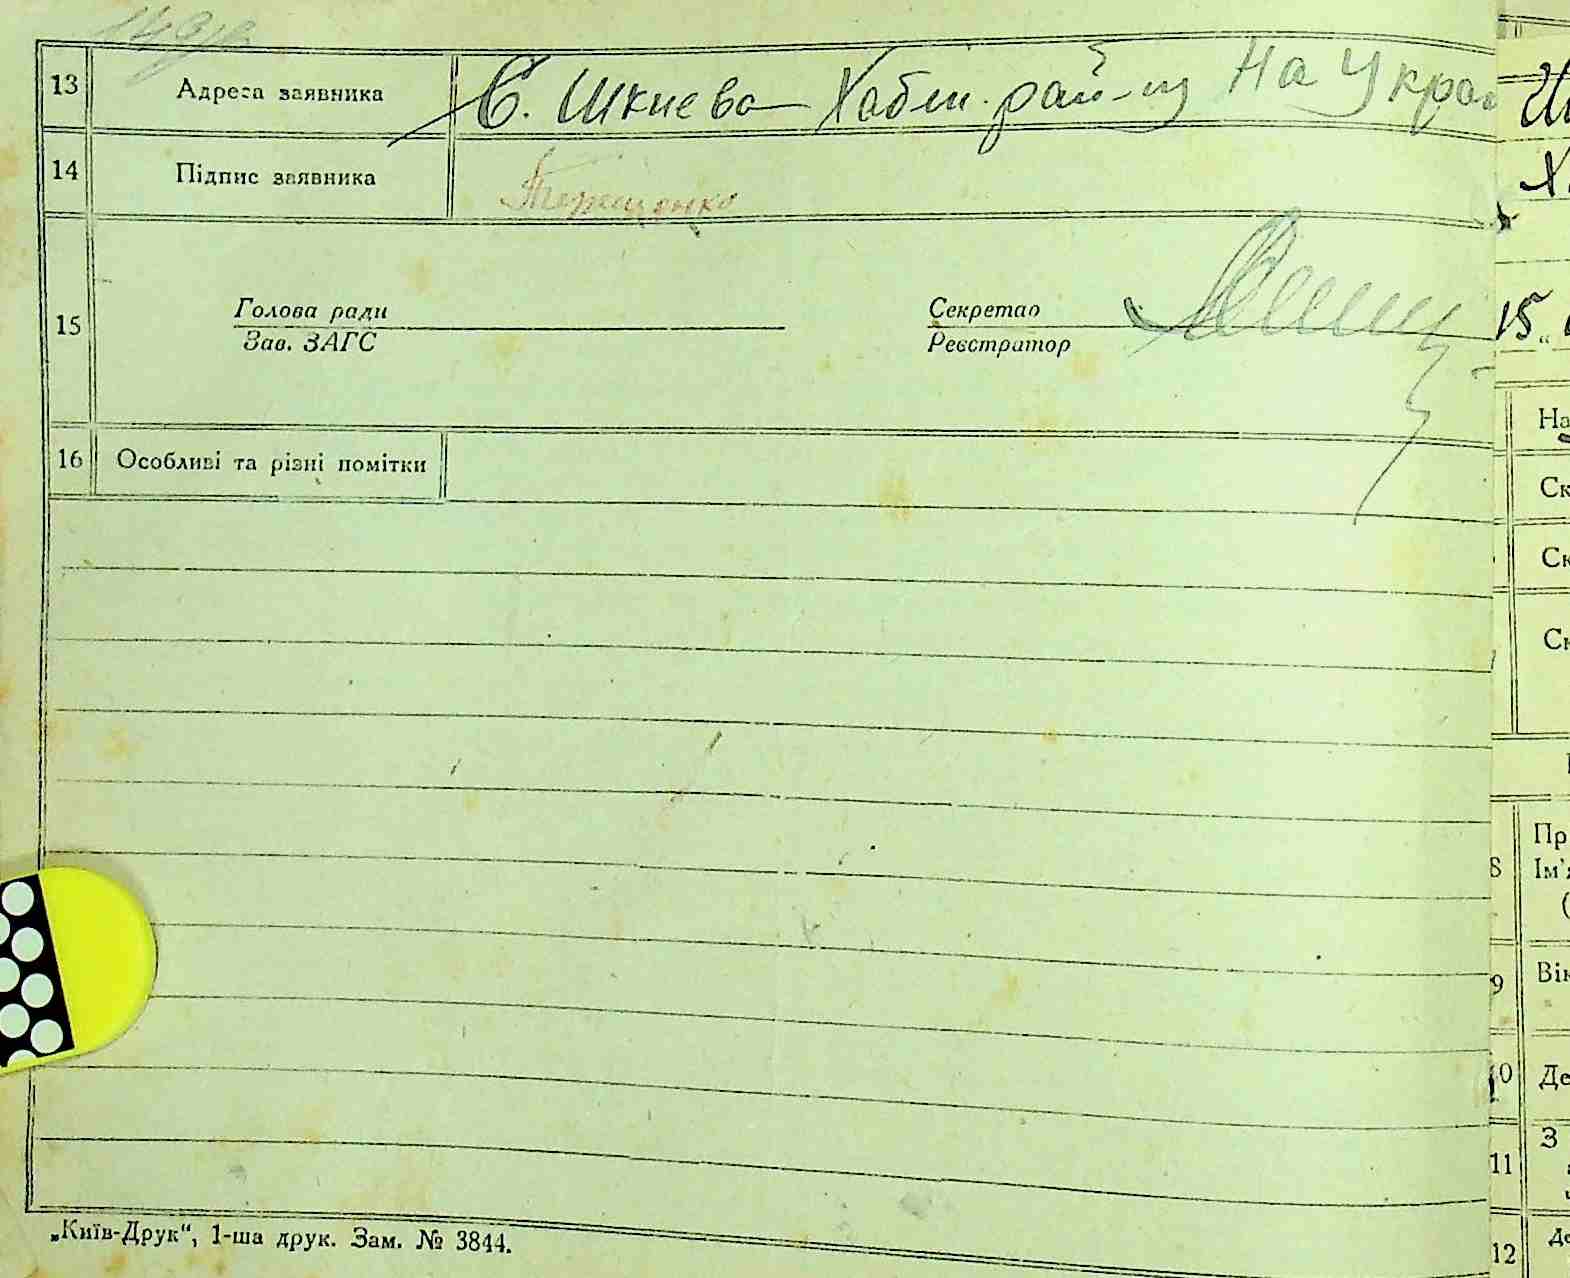 13 Адреса заявника С. Шкнева Хабн. рай-ну На Укра
14 Підпис заявника Терещенко
Голова ради Секретар
15
Зав. ЗАГС Реєстратор
16 Особливі та різні помітки
„Київ-Друк“, 1-ша друк. Зам. № 3844.
15 „
На
Ск
Ск
Ск
8 Пр
Ім'я
(
9 Вік
10 Де
11 З
12 Де